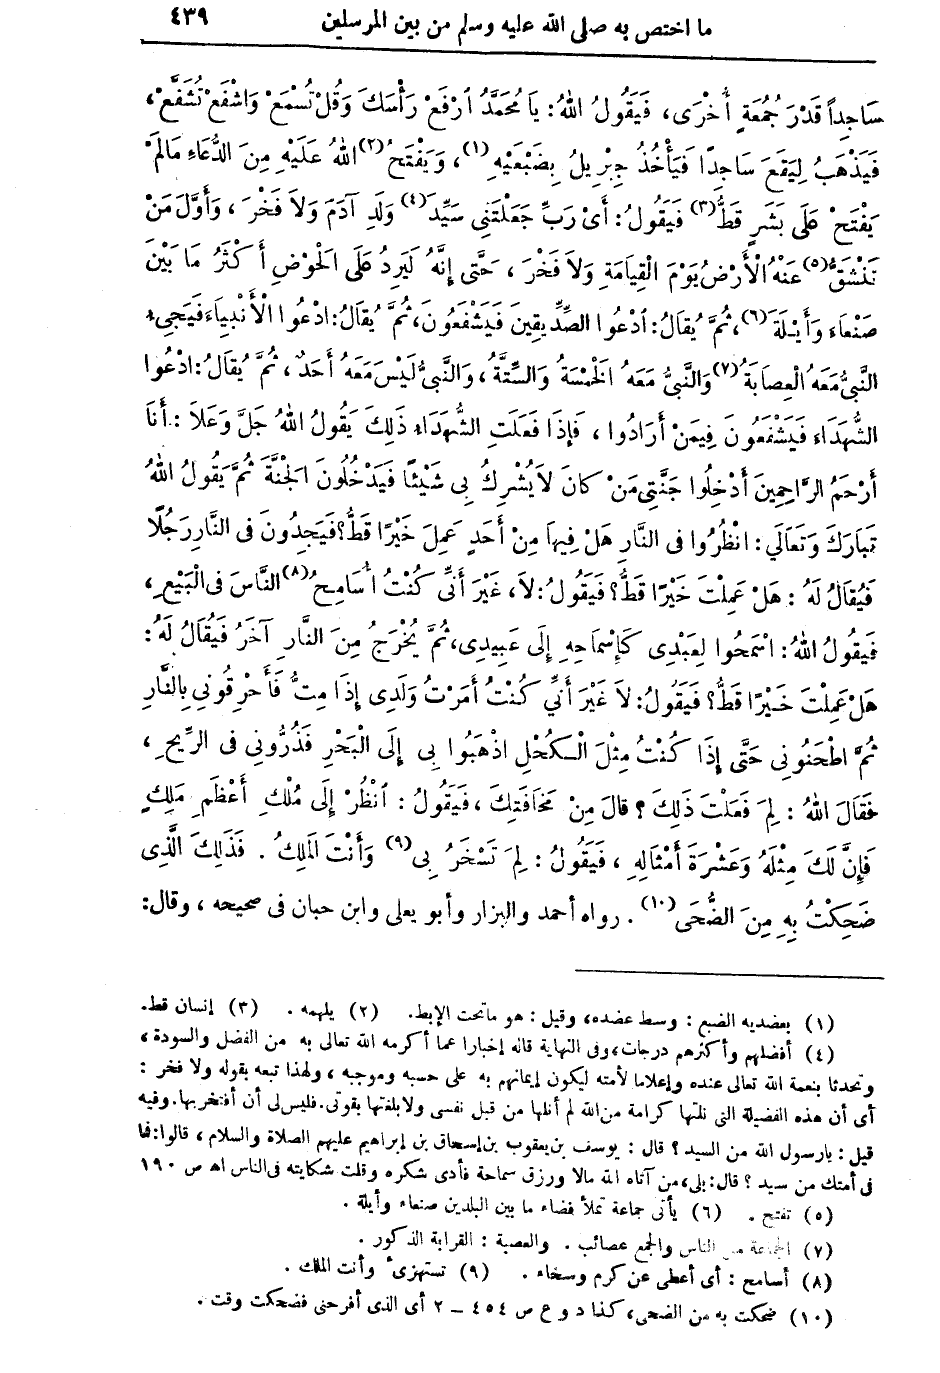 ما اختص به صلى الله عليه وسلم من بين المرسلين ٤٣٩
سَاجِداً قَدْرَ جُمُعَةٍ أُخْرَى، فَيَقُولُ اللهُ: يَا مُحَمَّدُ ارْفَعْ رَأْسَكَ وَقُلْ تُسْمَعْ وَاشْفَعْ تُشَفَّعْ،
فَيَذْهَبُ لِيَقَعَ سَاجِدًا فَيَأْخُذُ جِبْرِيلُ بِضَبْعَيْهِ (١)، وَيَفْتَحُ (٢) اللهُ عَلَيْهِ مِنَ الدُّعَاءِ مَالَمْ
يَفْتَحْ عَلَى بَشَرٍ قَطُّ (٣) فَيَقُولُ: أَىْ رَبِّ جَعَلْتَنِى سَيِّدَ (٤) وَلَدِ آدَمَ وَلاَ فَخْرَ، وَأَوَّلَ مَنْ
تَنْشَقُّ (٥) عَنْهُ الْأَرْضُ يَوْمَ الْقِيَامَةِ وَلاَ فَخْرَ، حَتَّى إِنَّهُ لَيَرِدُ عَلَى الْحَوْضِ أَكْثَرُ مَا بَيْنَ
صَنْعَاءَ وَأَيْلَةَ (٦)، ثُمَّ يُقَالُ: ادْعُوا الصِّدِّيقِينَ فَيَشْفَعُونَ، ثُمَّ يُقَالُ: ادْعُوا الْأَنْبِيَاءَ فَيَجِىءُ
النَّبِىُّ مَعَهُ الْعِصَابَةُ (٧) وَالنَّبِىُّ مَعَهُ الْخَمْسَةُ وَالسِّتَّةُ، وَالنَّبِىُّ لَيْسَ مَعَهُ أَحَدٌ، ثُمَّ يُقَالُ: ادْعُوا
الشُّهَدَاءَ فَيَشْفَعُونَ فِيمَنْ أَرَادُوا، فَإِذَا فَعَلَتِ الشُّهَدَاءُ ذَلِكَ يَقُولُ اللهُ جَلَّ وَعَلاَ: أَنَا
أَرْحَمُ الرَّاحِمِينَ أَدْخِلُوا جَنَّتِى مَنْ كَانَ لاَ يُشْرِكُ بِى شَيْئًا فَيَدْخُلُونَ الْجَنَّةَ ثُمَّ يَقُولُ اللهُ
تَبَارَكَ وَتَعَالَى: انْظُرُوا فِى النَّارِ هَلْ فِيهَا مِنْ أَحَدٍ عَمِلَ خَيْرًا قَطُّ؟ فَيَجِدُونَ فِى النَّارِ رَجُلًا
فَيُقَالُ لَهُ: هَلْ عَمِلْتَ خَيْرًا قَطُّ؟ فَيَقُولُ: لاَ، غَيْرَ أَنِّى كُنْتُ أُسَامِحُ (٨) النَّاسَ فِى الْبَيْعِ،
فَيَقُولُ اللهُ: اسْمَحُوا لِعَبْدِى كَإِسْمَاحِهِ إِلَى عَبِيدِى، ثُمَّ يُخْرَجُ مِنَ النَّارِ آخَرُ فَيُقَالُ لَهُ:
هَلْ عَمِلْتَ خَيْرًا قَطُّ؟ فَيَقُولُ: لاَ غَيْرَ أَنِّي كُنْتُ أَمَرْتُ وَلَدِى إِذَا مِتُّ فَأَحْرِقُونِي بِالنَّارِ
ثُمَّ اطْحَنُونِي حَتَّى إِذَا كُنْتُ مِثْلَ الْكُحْلِ اذْهَبُوا بِى إِلَى الْبَحْرِ فَذُرُّونِي فِى الرِّيحِ،
فَقَالَ اللهُ: لِمَ فَعَلْتَ ذَلِكَ؟ قَالَ مِنْ مَخَافَتِكَ، فَيَقُولُ: انْظُرْ إِلَى مُلْكِ أَعْظَمِ مَلِكٍ
فَإِنَّ لَكَ مِثْلَهُ وَعَشْرَةَ أَمْثَالِهِ، فَيَقُولُ: لِمَ تَسْخَرُ بِى (٩) وَأَنْتَ الْمَلِكُ. فَذَلِكَ الَّذِى
ضَحِكْتُ بِهِ مِنَ الضُّحَى (١٠). رواه أحمد والبزار وأبو يعلى وابن حبان فى صحيحه، وقال:
(١) بعضديه الضبع: وسط عضده، وقيل: هو ماتحت الإبط. (٢) يلهمه. (٣) إنسان قط.
(٤) أفضلهم وأكثرهم درجات، وفى النهاية قاله إخبارا عما أكرمه الله تعالى به من الفضل والسودة،
وتحدثا بنعمة الله تعالى عنده وإعلاما لأمته ليكون إيمانهم به على حسبه وموجبه، ولهذا تبعه بقوله ولا فخر:
أى أن هذه الفضيلة التى نلتها كرامة من الله لم أنلها من قبل نفسى ولابلغتها بقوتى. فليس لى أن أفتخر بها. وفيه
قيل: يارسول الله من السيد؟ قال: يوسف بن يعقوب بن إسحاق بن إبراهيم عليهم الصلاة والسلام، قالوا: فما
فى أمتك من سيد؟ قال: بلى، من آتاه الله مالا ورزق سماحة فأدى شكره وقلت شكايته فى الناس اه ص ١٩٠
(٥) تفتح. (٦) يأتى جماعة تملأ فضاء ما بين البلدين صنعاء وأيلة.
(٧) الجماعة من الناس والجمع عصائب. والعصبة: القرابة الذكور.
(٨) أسامح: أى أعطى عن كرم وسخاء. (٩) تستهزىء وأنت الملك.
(١٠) ضحكت به من الضحى، كذا د و ع ص ٤٥٤ – ٢ أى الذى أفرحنى فضحكت وقت.